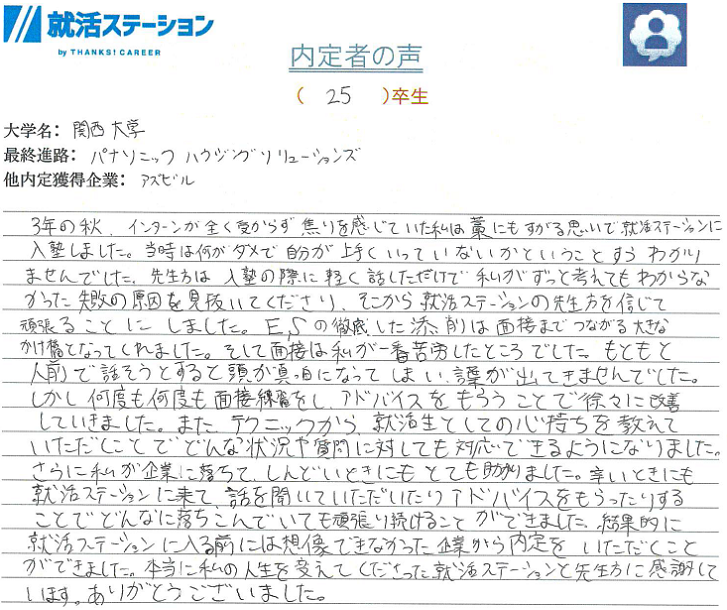 就活ステーション
by THANKS! CAREER
内定者の声
( 25 )卒生
大学名: 関西大学
最終進路: パナソニック ハウジングソリューションズ
他内定獲得企業: アズビル
3年の秋、インターンが全く受からず焦りを感じていた私は藁にもすがる思いで就活ステーションに
入塾しました。当時は何がダメで自分が上手くいっていないかということすらわかり
ませんでした。先生方は入塾の際に軽く話しただけで私がずっと考えてもわからな
かった失敗の原因を見抜いてくださり、そこから就活ステーションの先生方を信じて
頑張ることにしました。E,Sの徹底した添削は面接までつながる大きな
かけ橋となってくれました。そして面接は私が一番苦労したところでした。もともと
人前で話そうとすると頭が真っ白になってしまい、言葉が出てきませんでした。
しかし何度も何度も面接練習をし、アドバイスをもらうことで徐々に改善
していきました。また テクニックから、就活生としての心持ちを教えて
いただくことでどんな状況や質問に対しても対応できるようになりました。
さらに私が企業に落ちて、しんどいときにもとても助かりました。辛いときにも
就活ステーションに来て 話を聞いていただいたりアドバイスをもらったりする
ことでどんなに落ちこんでいても頑張り続けることができました。結果的に
就活ステーションに入る前には想像できなかった企業から内定をいただくこと
ができました。本当に私の人生を変えてくださった就活ステーションと先生方に感謝して
います。ありがとうございました。